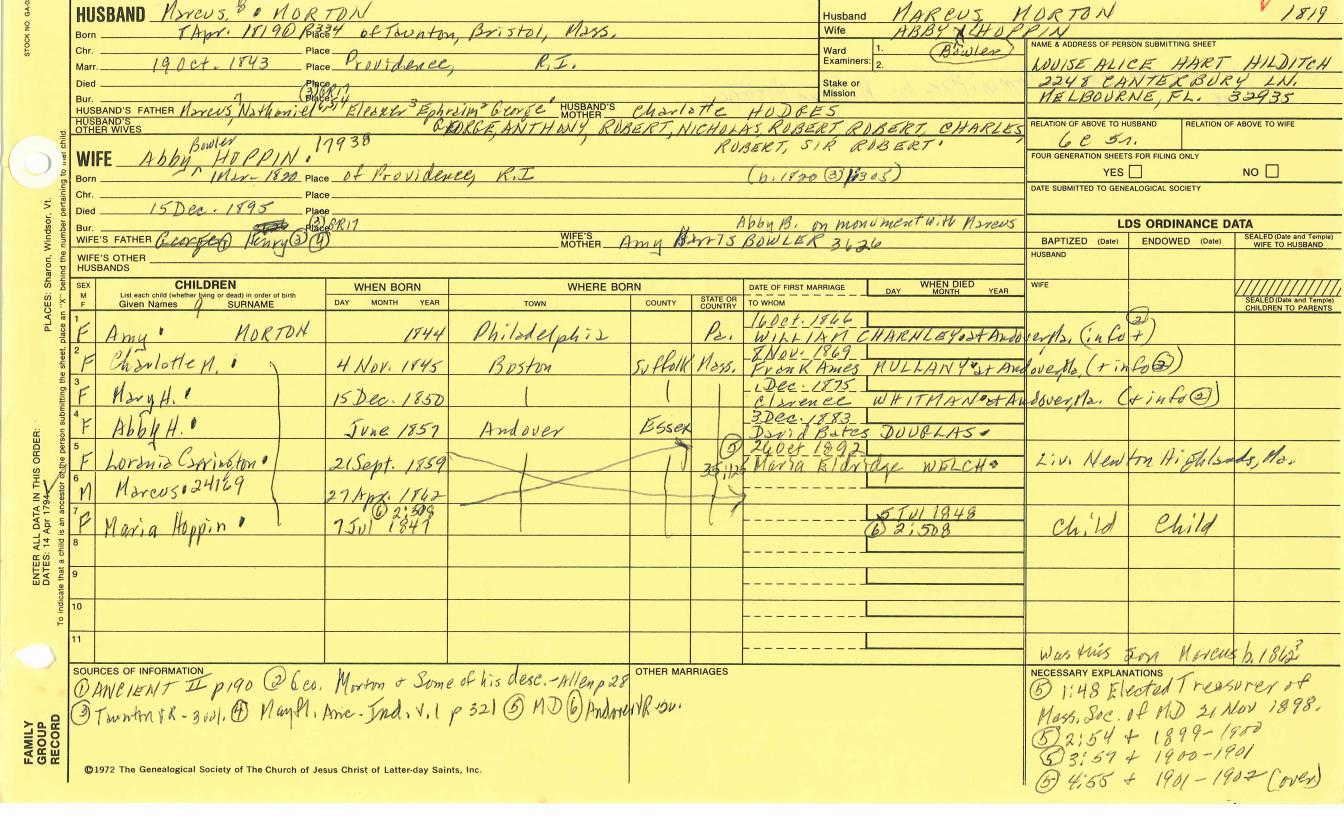 STOCK NO. GA-0
HUSBAND Marcus, 8 MORTON
Husband MARCUS MORTON 1819
Born 8 Apr. 1819 Place of Taunton, Bristol, Mass.
Wife ABBY HOPPIN
(Bowler)
Chr. Place
Ward Examiners: 1. 2.
NAME & ADDRESS OF PERSON SUBMITTING SHEET
Marr. 19 Oct. 1843 Place Providence, R.I.
LOUISE ALICE HART HILDITCH
Died Place
Stake or Mission
2248 CANTERBURY LN.
Bur. Place
MELBOURNE, FL. 32935
HUSBAND'S FATHER Marcus, 7 Nathaniel 6,5,4 Eleazer 3 Ephraim 2 George 1 HUSBAND'S MOTHER Charlotte HODGES
HUSBAND'S OTHER WIVES GEORGE, ANTHONY, ROBERT, NICHOLAS, ROBERT, ROBERT, CHARLES,
ROBERT, SIR ROBERT.
RELATION OF ABOVE TO HUSBAND RELATION OF ABOVE TO WIFE
6c 5r.
WIFE Abby Bowler HOPPIN. 17938
FOUR GENERATION SHEETS FOR FILING ONLY
YES NO
Born Mar- 1820 Place of Providence, R.I (b. 1820 (3) 1:305)
Chr. Place
DATE SUBMITTED TO GENEALOGICAL SOCIETY
Died 15 Dec. 1895 Place
Bur. Place (3) GR17 Abby B. on monument with Marcus
LDS ORDINANCE DATA
WIFE'S FATHER George (1) Henry (3) (4) WIFE'S MOTHER Amy Harris BOWLER 3626
BAPTIZED (Date) ENDOWED (Date) SEALED (Date and Temple) WIFE TO HUSBAND
WIFE'S OTHER HUSBANDS
HUSBAND
SEX M F CHILDREN WHEN BORN WHERE BORN DATE OF FIRST MARRIAGE WHEN DIED
List each child (whether living or dead) in order of birth
Given Names 9 SURNAME DAY MONTH YEAR TOWN COUNTY STATE OR COUNTRY TO WHOM DAY MONTH YEAR
WIFE
SEALED (Date and Temple) CHILDREN TO PARENTS
1 16 Oct. 1866
F Amy MORTON 1844 Philadelphia Pa. WILLIAM CHARNLEY at Andover, Ma. (info + (2))
2 8 Nov. 1869
F Charlotte H. 4 Nov. 1845 Boston Suffolk Mass. Frank Ames MULLANY at Andover, Ma. (+ info (2))
3 1 Dec. 1875
F Mary H. 15 Dec. 1850 Clarence WHITMAN at Andover, Ma. (+ info (2))
4 3 Dec. 1883
F Abby H. June 1857 Andover Essex David Bates DOUGLAS
5 (5) 26 Oct 1892
F Lorania Carrington 21 Sept. 1859 Maria Eldridge WELCH Liv. Newton Highlands, Ma.
6
M Marcus 24169 27 Apr. 1862
7 (6) 2:508 5 Jul 1848
F Maria Hoppin 7 Jul 1847 (6) 2:508 Child Child
8
9
10
11
Was this Jon Marcus b. 1862?
SOURCES OF INFORMATION OTHER MARRIAGES NECESSARY EXPLANATIONS
(1) ANCIENT II p190 (2) Geo. Morton & Some of his desc. - Allen p 28
(3) Taunton VR - 3 vol. (4) Mayfl. Anc. Ind. V.1 p 321 (5) MD (6) Andover VR 2v.
(5) 1:48 Elected Treasurer of
Mass. Soc. of MD 21 Nov 1898.
(5) 2:54 + 1899-1900
(5) 3:59 + 1900-1901
(5) 4:55 + 1901-1902 (over)
©1972 The Genealogical Society of The Church of Jesus Christ of Latter-day Saints, Inc.
FAMILY GROUP RECORD
ENTER ALL DATA IN THIS ORDER: PLACES: Sharon, Windsor, Vt.
DATES: 14 Apr 1794
To indicate that a child is an ancestor of the person submitting the sheet, place an "X" behind the number pertaining to that child.